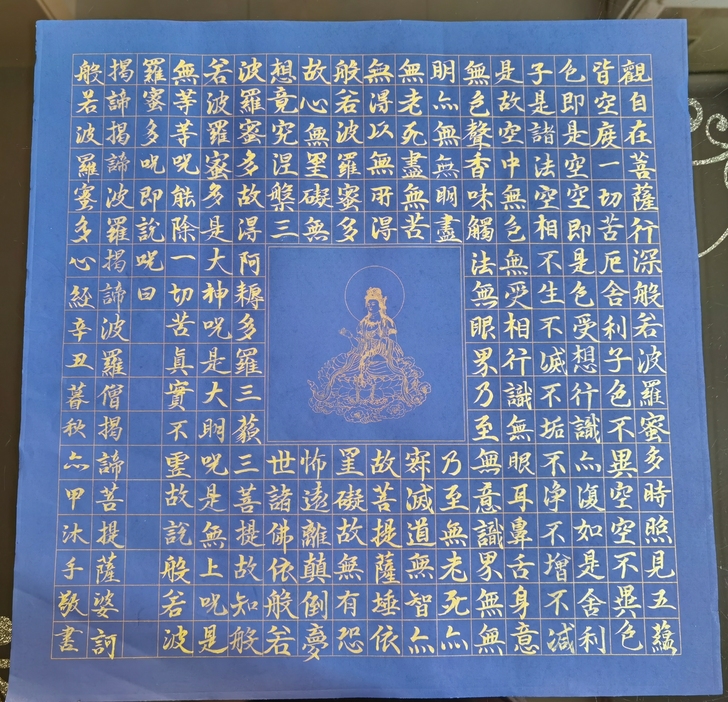 觀自在菩薩行深般若波羅蜜多時照見五蘊
皆空度一切苦厄舍利子色不異空空不異色
色即是空空即是色受想行識亦復如是舍利
子是諸法空相不生不滅不垢不淨不增不減
是故空中無色無受相行識無眼耳鼻舌身意
無色聲香味觸法無眼界乃至無意識界無無
明亦無無明盡乃至無老死亦
無老死盡無苦寂滅道無智亦
無得以無所得故菩提薩埵依
般若波羅蜜多罣礙故無有恐
故心無罣礙無怖遠離顛倒夢
想竟究涅槃三世諸佛依般若
波羅蜜多故得阿耨多羅三藐三菩提故知般
若波羅蜜多是大神咒是大明咒是無上咒是
無等等咒能除一切苦真實不虛故說般若波
羅蜜多咒即說咒曰
揭諦揭諦波羅揭諦波羅僧揭諦菩提薩婆訶
般若波羅蜜多心經辛丑暮秋亦甲沐手敬書